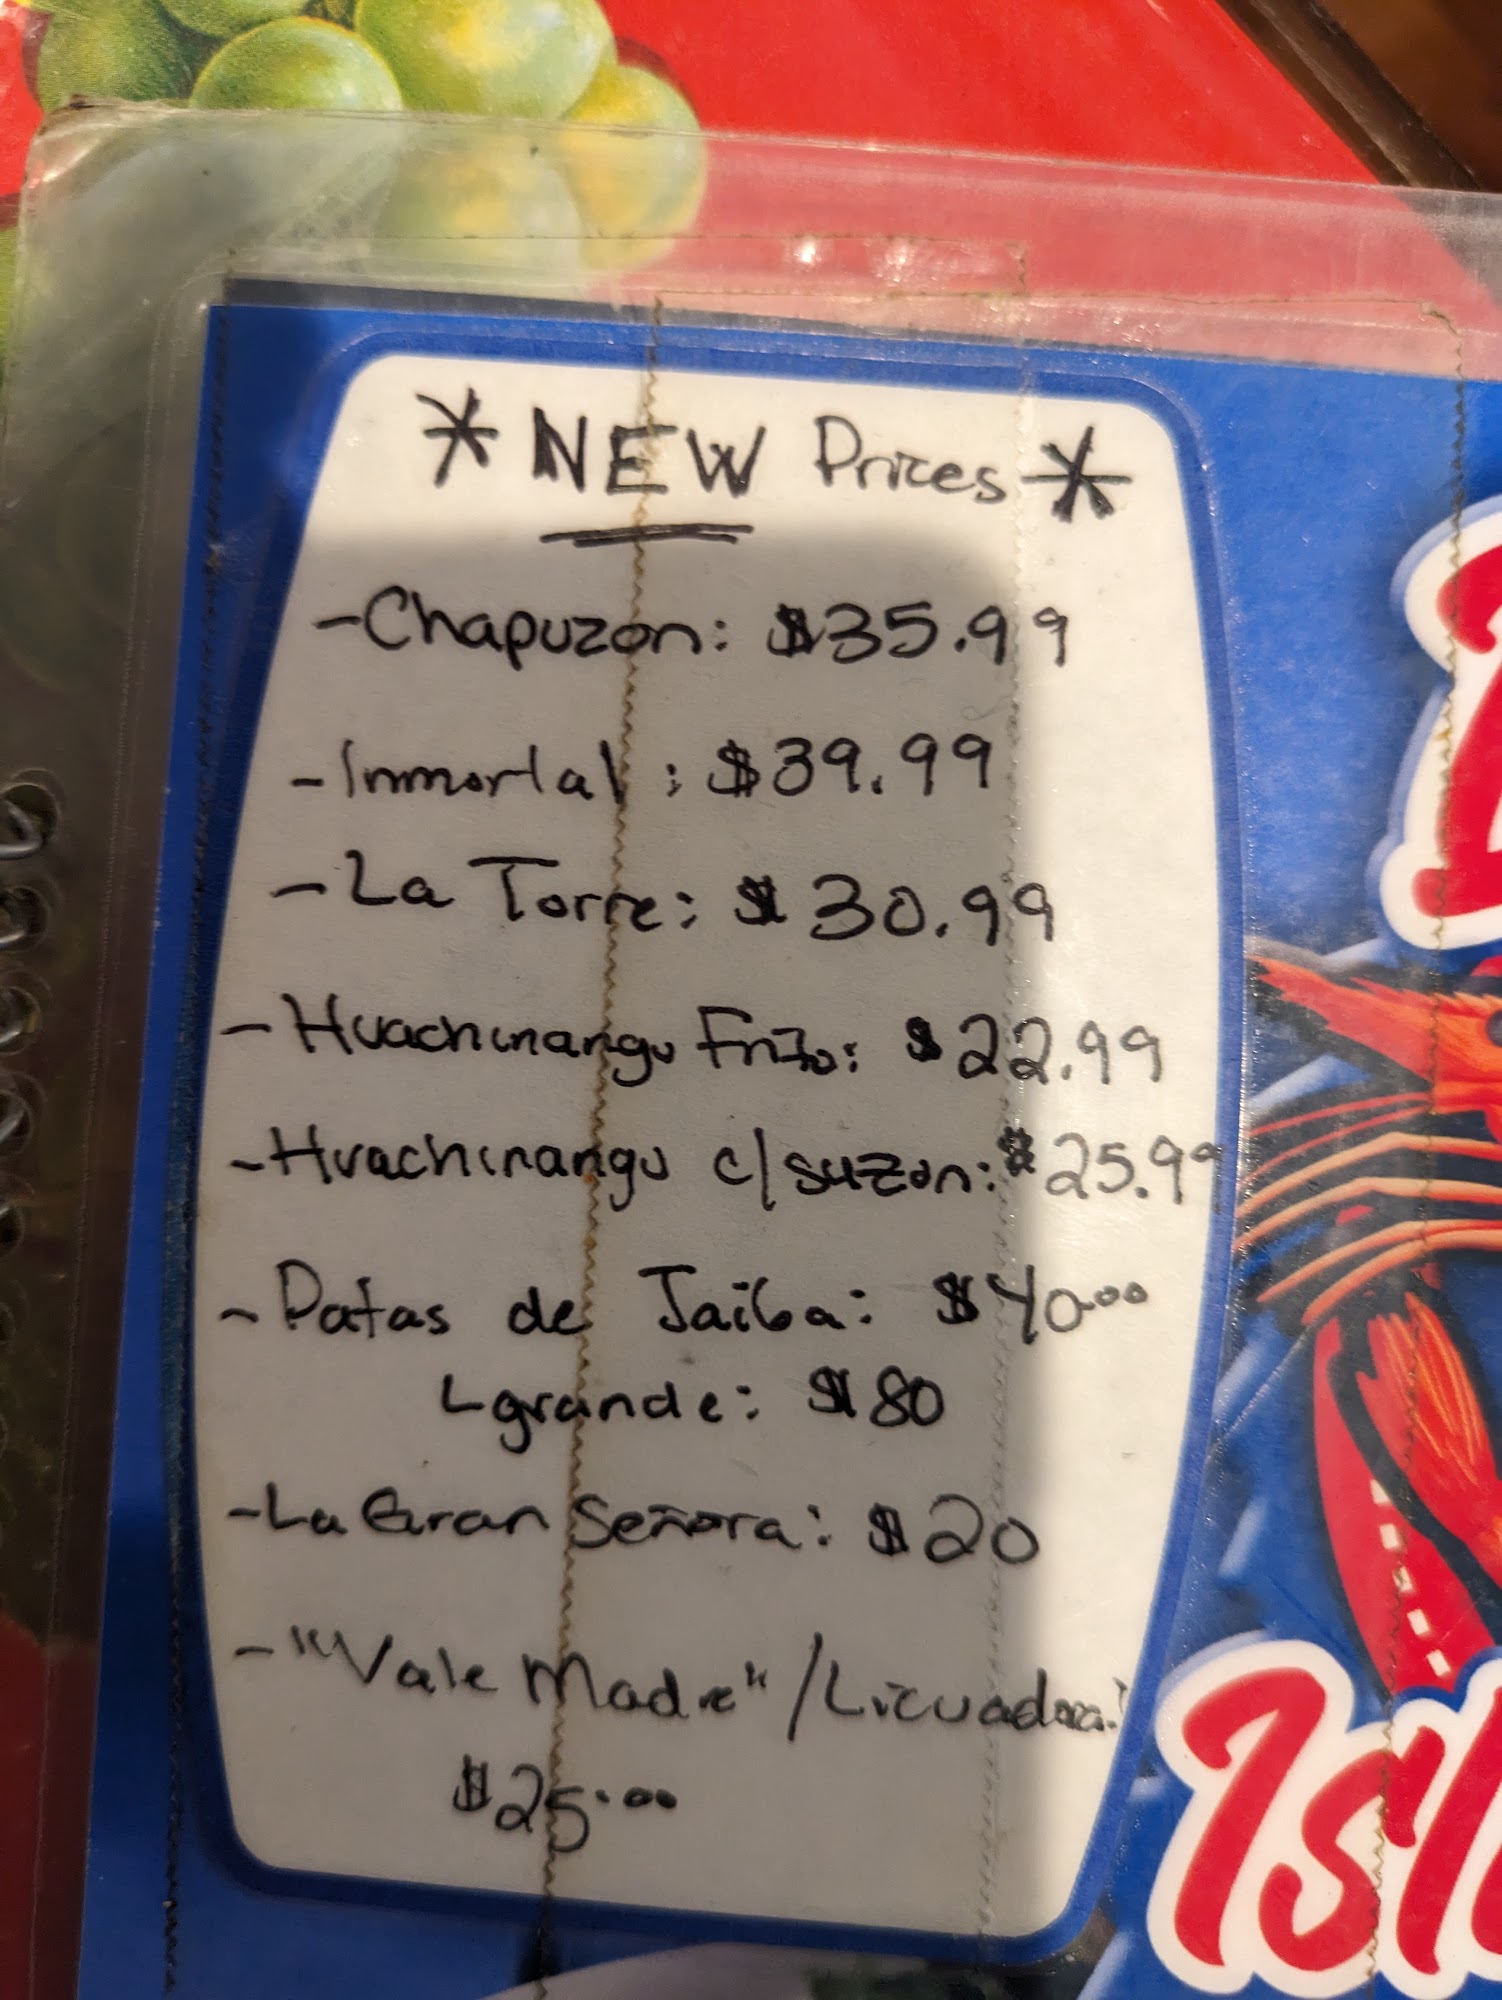 * NEW Prices *
- Chapuzon: $35.99
- Inmortal: $39.99
- La Torre: $30.99
- Huachinango Frito: $22.99
- Huachinango c/suzon: $25.99
- Patas de Jaiba: $40.00
grande: $80
- La Gran Señora: $20
- "Vale Madre"/Licuadora:
$25.00